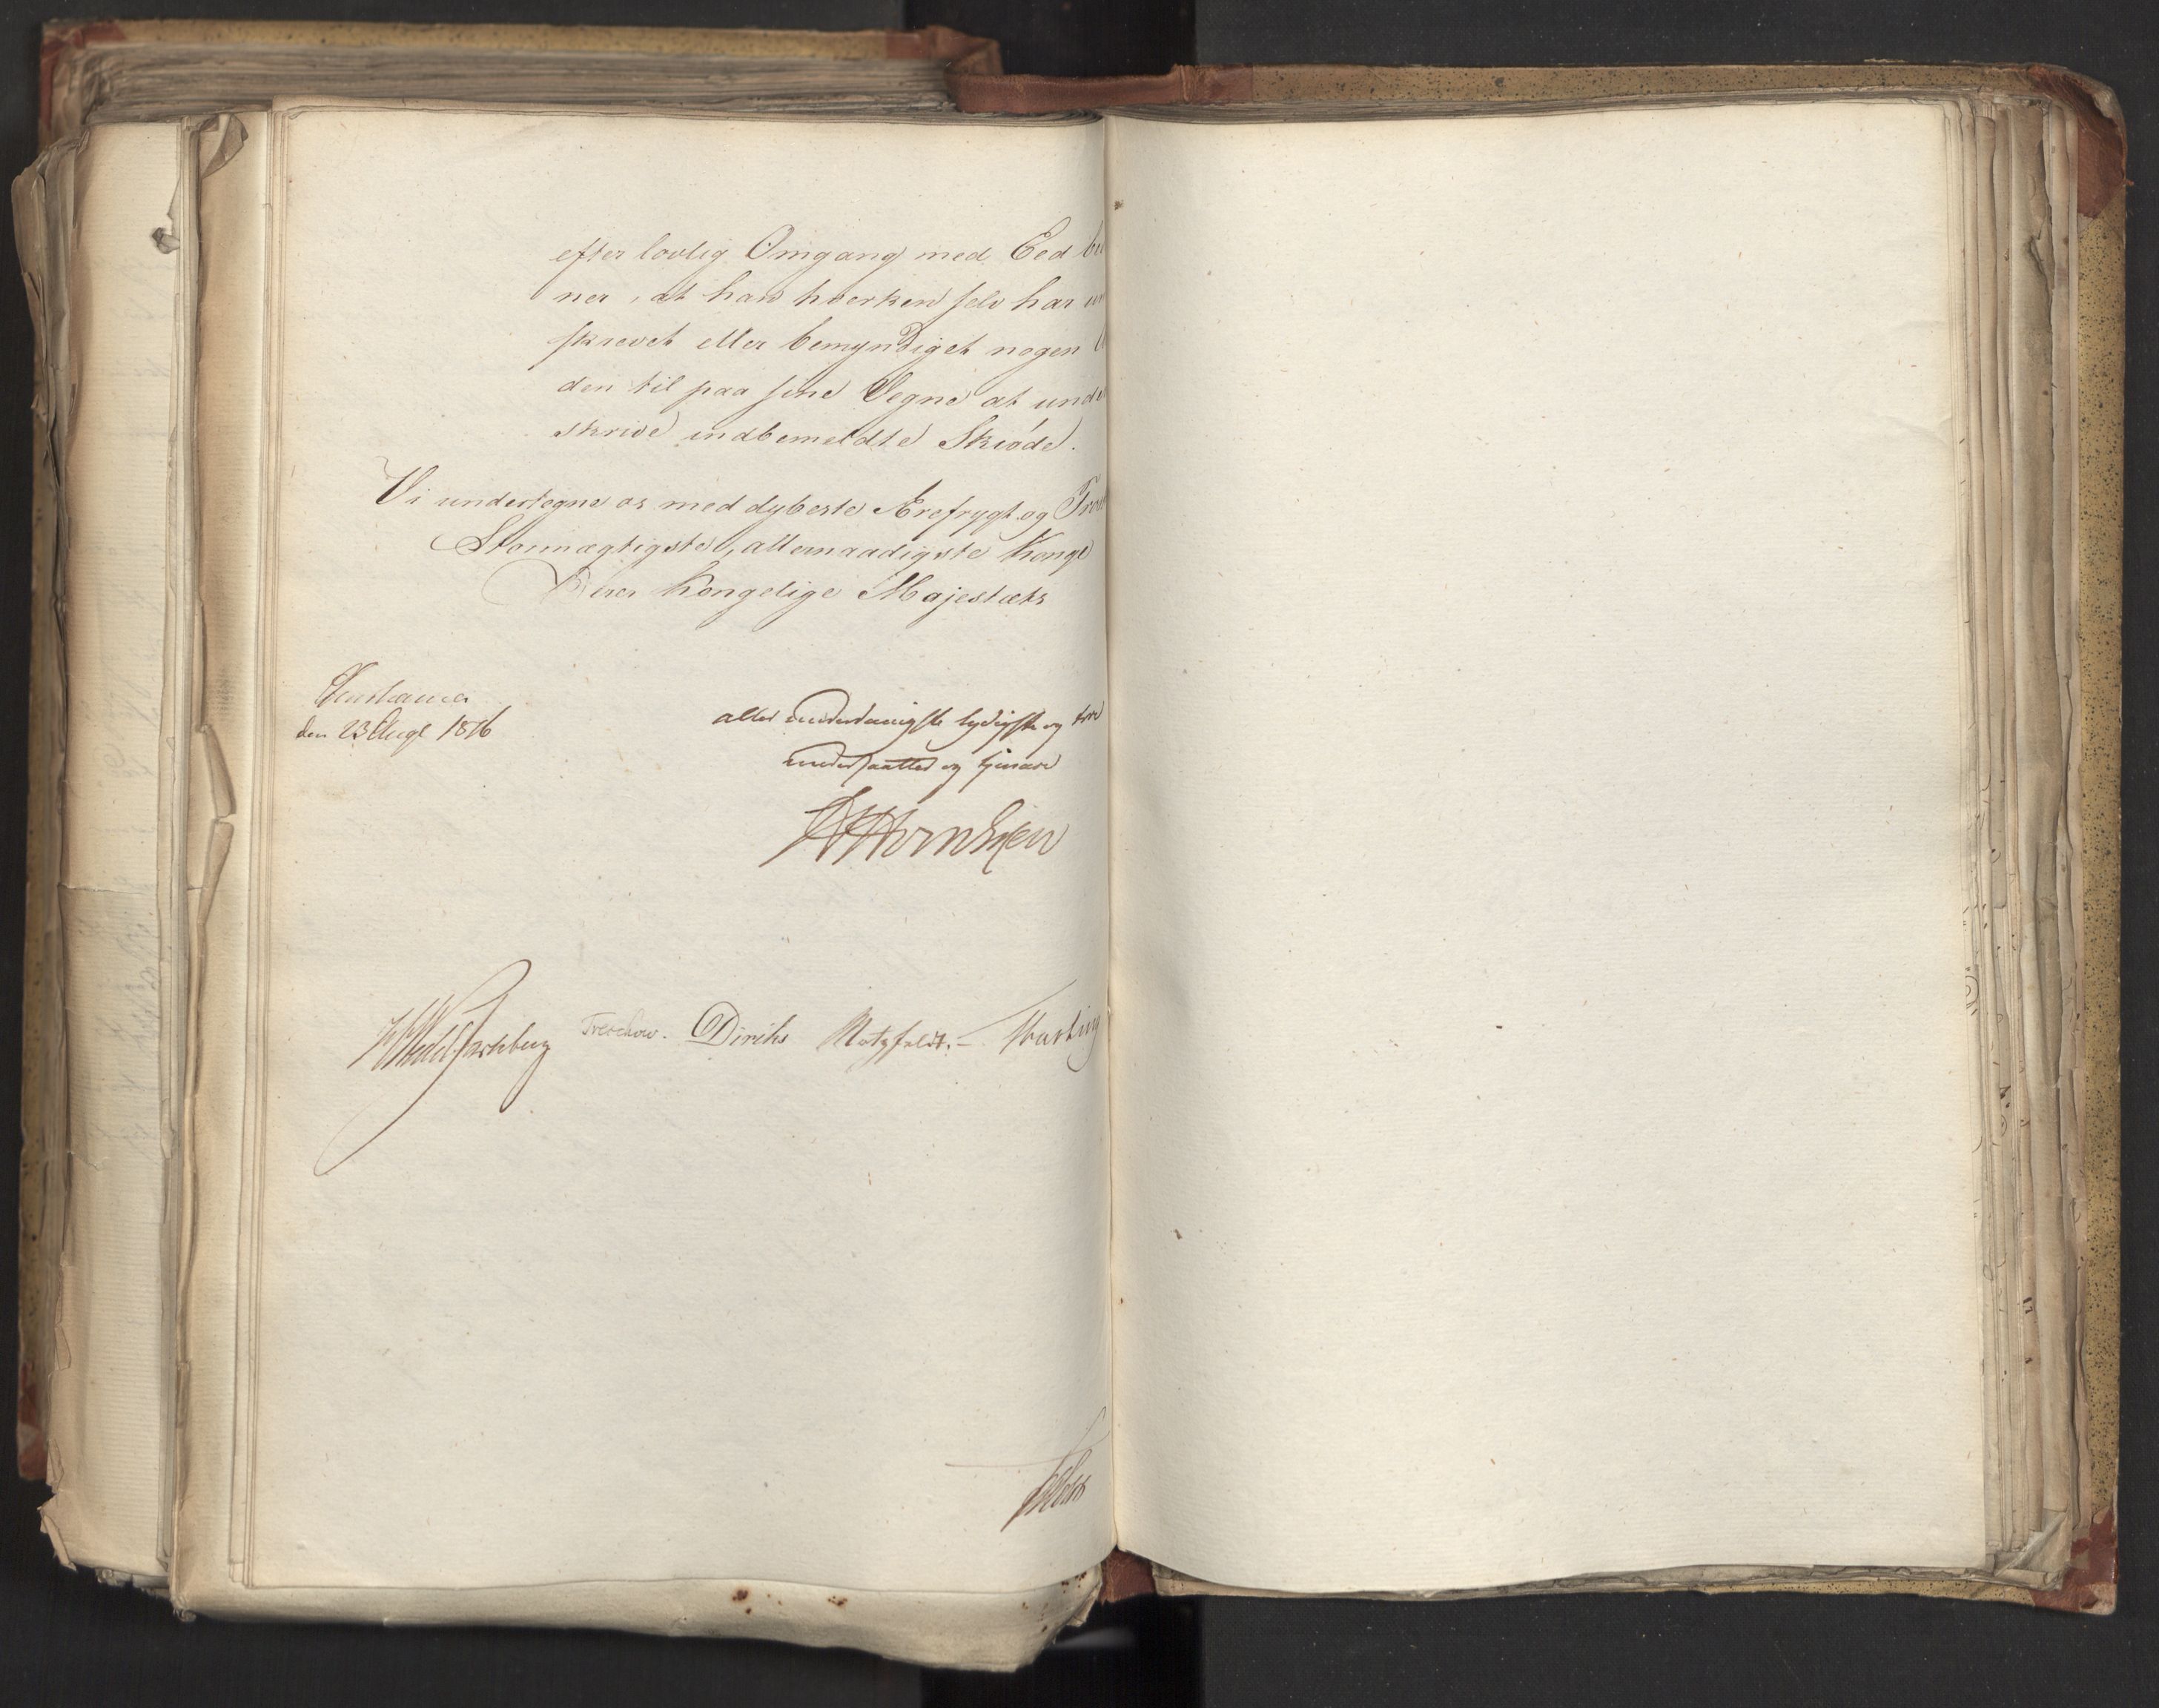 efter lovlig Omgang med Eed be
ner, at han hverken selv har un
skrevet eller bemyndiget nogen
den til paa sine Vegne at unde
skrive indbemeldte Skiøde.
Vi undertegne os med dybeste Ærefrygt og Tro
Stormægtigste, allernaadigste Konge
Deres Kongelige Majestæts
Christiania
den 23 Augt 1816
aller underdanigste lydigste og troe
undersaatter og tjenere
Wedel Jarlsberg Treschow. Diriks Motzfeldt. -